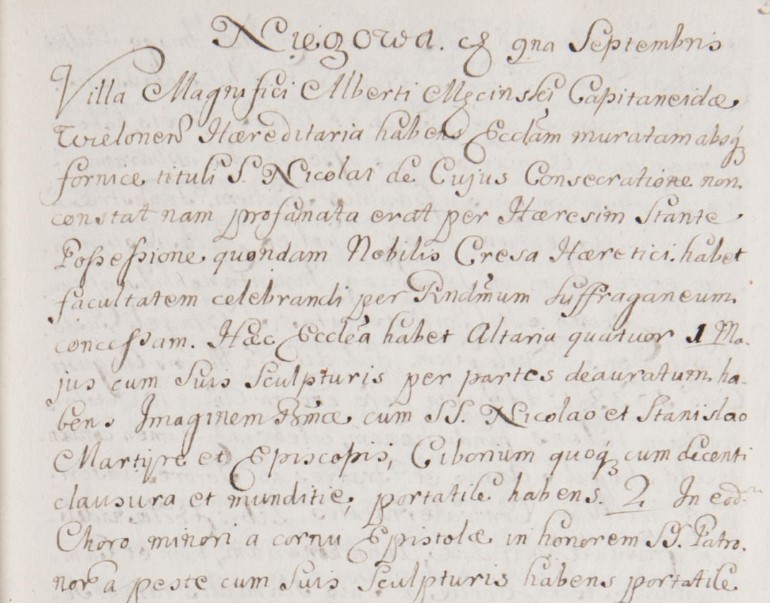 Niegowa. 9na Septembris
Villa Magnifici Alberti Męcinski Capitaneidæ
Wielonen Hæreditaria habens Ecclam muratam absq3
fornice, tituli S. Nicolai de Cujus Consecratione non.
constat nam profanata erat per Hæresim Stante
Possessione quondam Nobilis Cresa Hæretici. habet
facultatem celebrandi per Rndmum Suffraganeum.
concessam. Hæc Ecclea habet Altaria quatuor 1 Ma-
jus cum Suis Sculpturis per partes deauratum. ha-
bens Imaginem cum SS. Nicolao et Stanislao
Martyre et Episcopis, Ciborium quoq3 cum decenti
clausura et munditie, portatile habens. 2. In eod.
Choro minori a cornu Epistolæ in honorem SS. Patro.
nor a peste cum Suis Sculpturis habens portatile